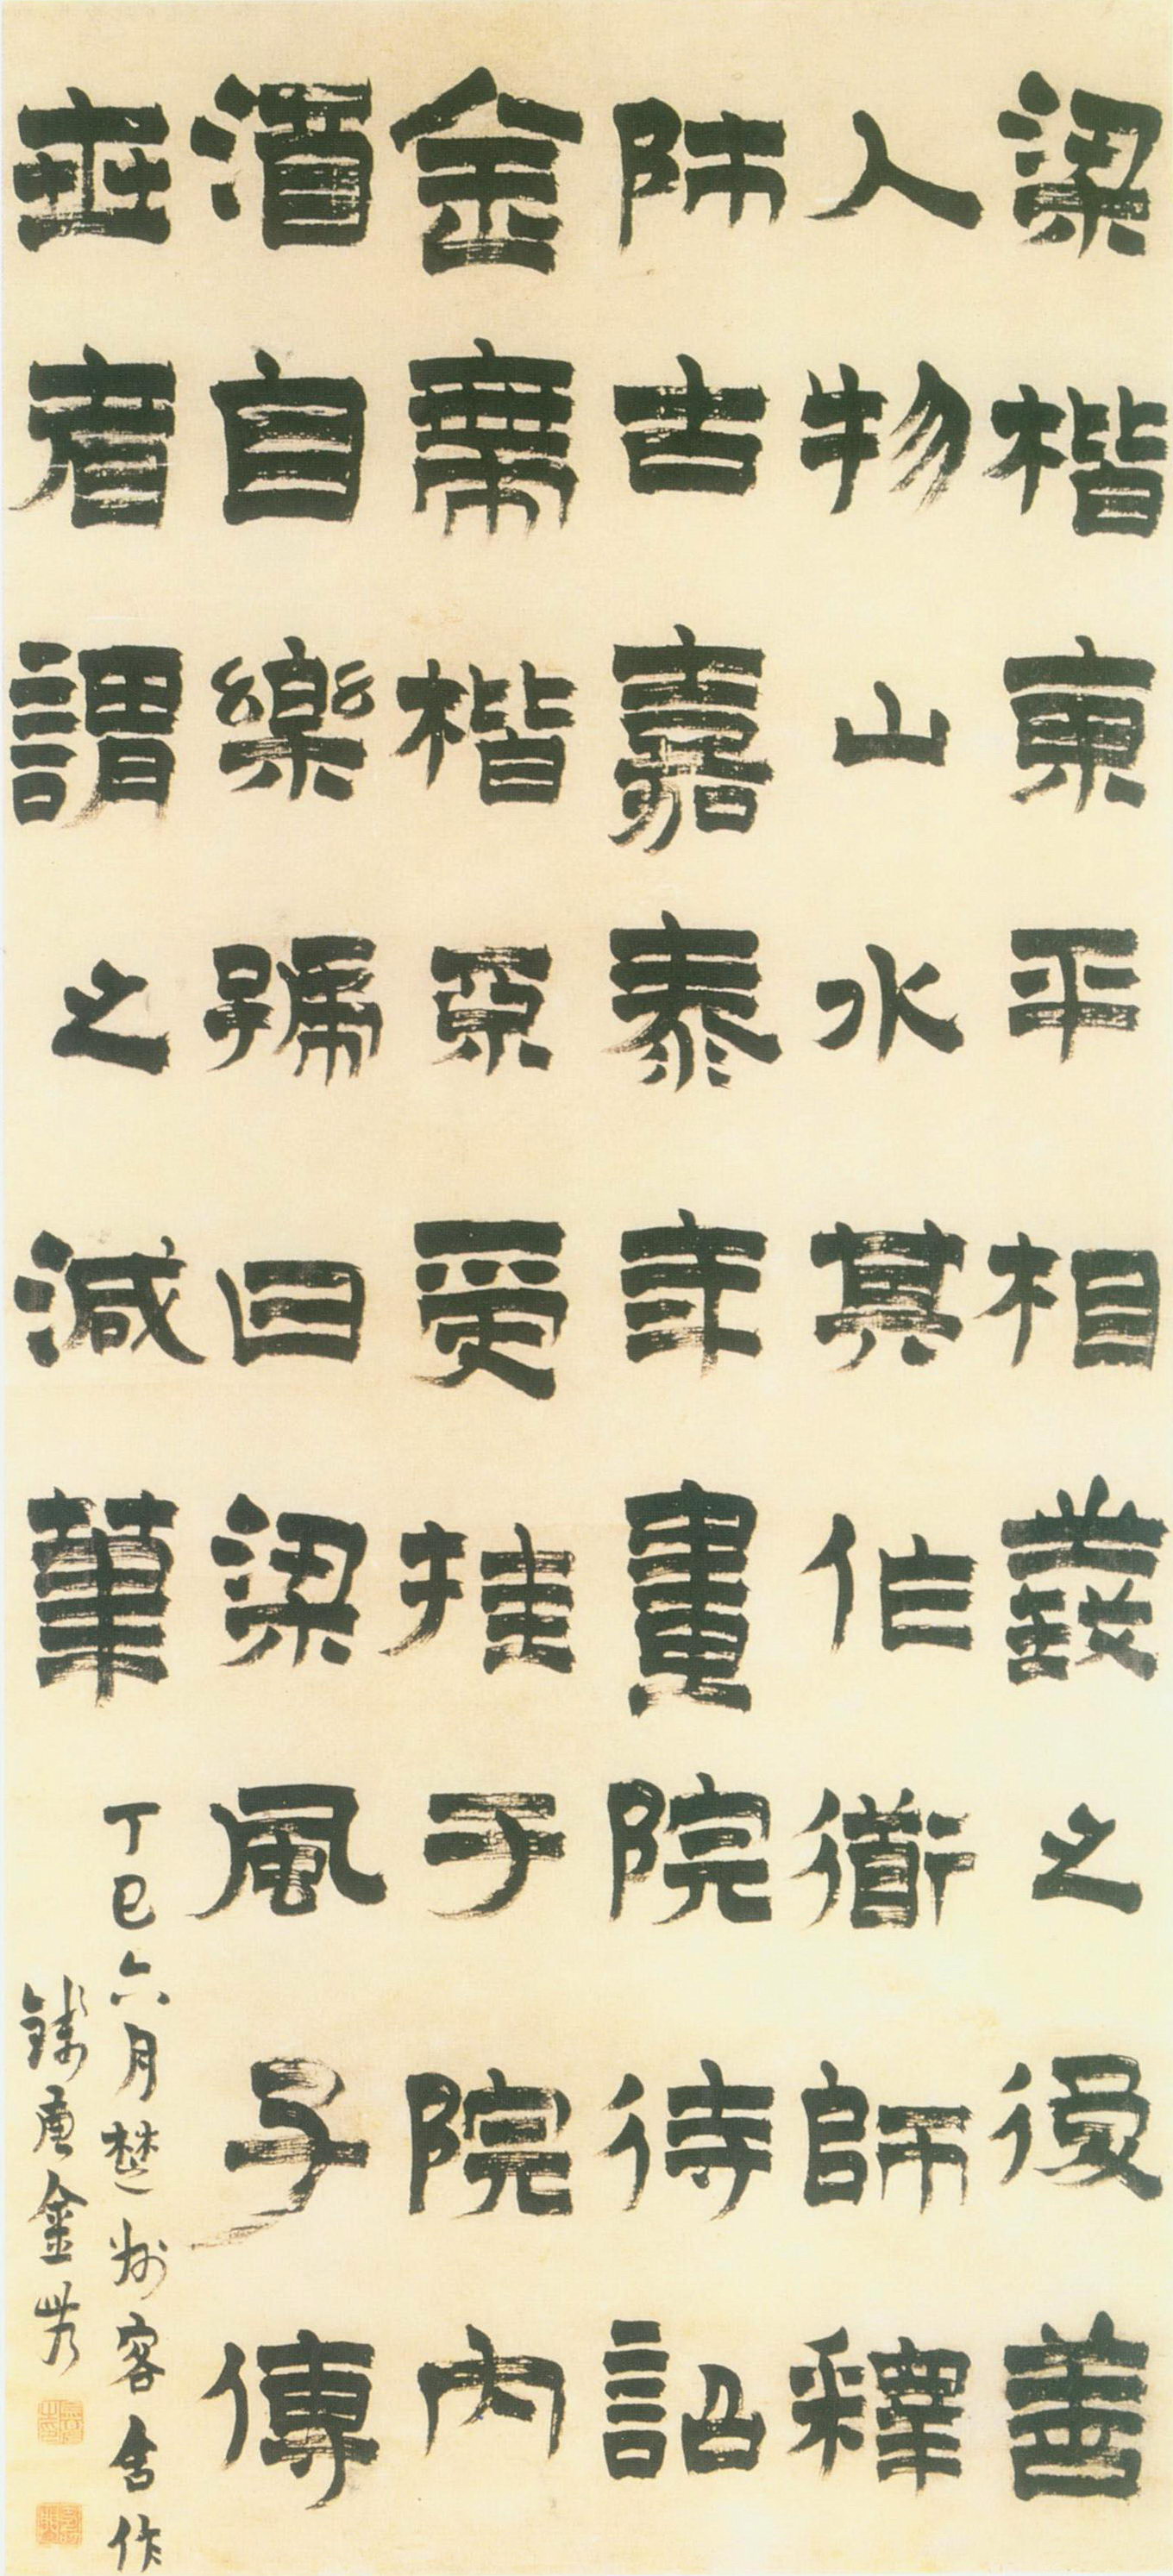 梁楷東平相叢之後善
人物山水其作衜師釋
師古嘉泰年畫院待詔
金帶楷受挂于院內
酒自樂號曰梁風子傳
世者謂之減筆
丁巳六月楚州客舍作
錢唐金農